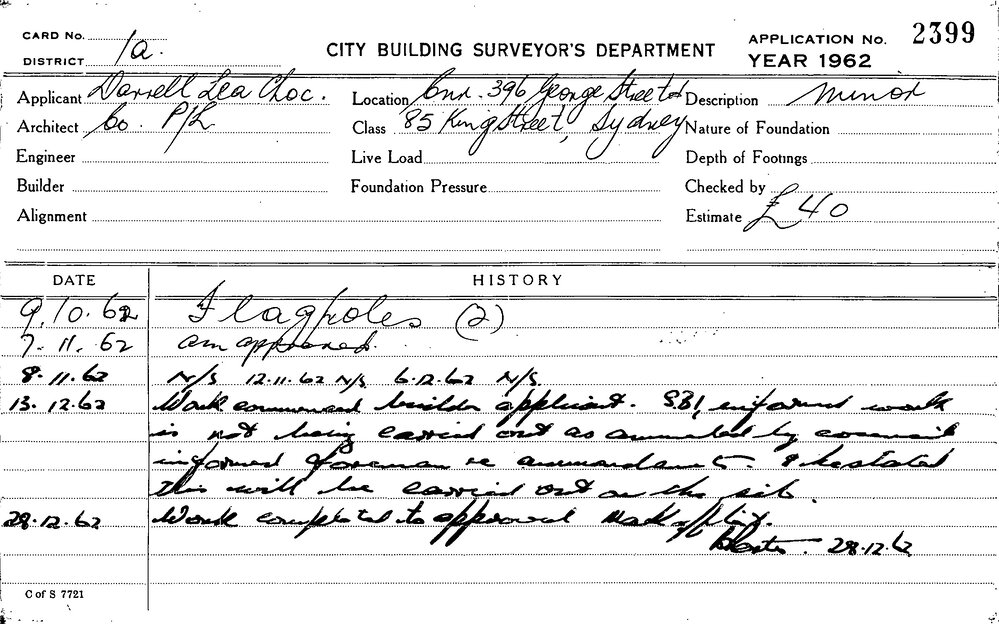 CARD No.
DISTRICT 1a.
CITY BUILDING SURVEYOR'S DEPARTMENT
APPLICATION No. 2399
YEAR 1962
Applicant Darrell Lea Choc.
Location Cnr. 396 George Street &
Description Minor
Architect Co. P/L
Class 85 King Street, Sydney
Nature of Foundation
Engineer
Live Load
Depth of Footings
Builder
Foundation Pressure
Checked by
Alignment
Estimate £40
DATE HISTORY
9.10.62 Flagpoles (2)
7.11.62 am approved.
8.11.62 N/S 12.11.62 N/S 6.12.62 N/S
13.12.62 Work commenced builder applicant. S.B.I. informed work
is not being carried out as ammended by council
informed foreman re ammendments. & he stated
this will be carried out on the job.
28.12.62 Work completed to approval Mark off
28.12.62
C of S 7721